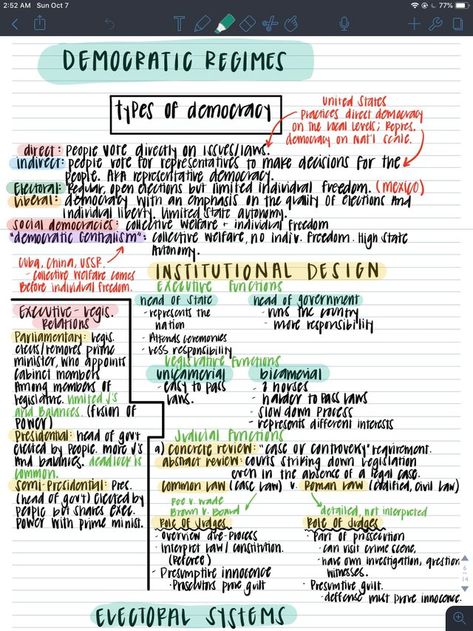 2:52 AM Sun Oct 7
77%
DEMOCRATIC REGIMES
types of democracy
United States
Practices direct democracy
on the local levels; Repres.
democracy on Nat'l scale.
direct: People vote directly on issues/laws.
indirect: people vote for representatives to make decisions for the
people. AKA representative democracy.
Electoral: Regular, open elections but limited individual freedom. (Mexico)
liberal: democracy with an emphasis on the quality of elections And
individual liberty. Limited State autonomy.
Social democracies: collective welfare + individual freedom
"democratic centralism": collective welfare, no indiv. freedom. High State
Autonomy.
Cuba, China, USSR.
- collective welfare comes
Before individual freedom.
INSTITUTIONAL DESIGN
Executive Functions
head of State
- represents the
nation
- Attends ceremonies
- less responsibility
head of government
- runs the country
- more responsibility
Legislative Functions
unicameral
- easy to pass
laws.
bicameral
- 2 houses
- harder to pass laws
- slow down process
- represents different interests
Executive - Legis.
Relations
Parliamentary: Legis.
elects/removes prime
minister, who appoints
cabinet members
Among members of
legislative. limited J's
and Balances. (fusion of
power)
Presidential: head of govt
elected by people. more J's
and balances. deadlock is
common.
Semi-Presidential: Pres.
(head of govt) elected by
people but shares exec.
Power with prime minis.
Judicial Functions
a) Concrete review: "case or controversy" requirement.
abstract review: courts striking down legislation
even in the absence of a legal case.
common law (case law) v. Roman law (codified, civil law)
Roe v. Wade
Brown v. Board
detailed, not interpreted
Role of Judges
- Overview due-Process
- Interpret law / constitution.
(Referee)
- Presumptive innocence
- Prosecutors prove guilt
Role of Judges
- Part of prosecution
- can visit crime scene,
- have own investigation, question
witnesses.
- Presumptive guilt.
- defense must prove innocence.
6
14
ELECTORAL SYSTEMS